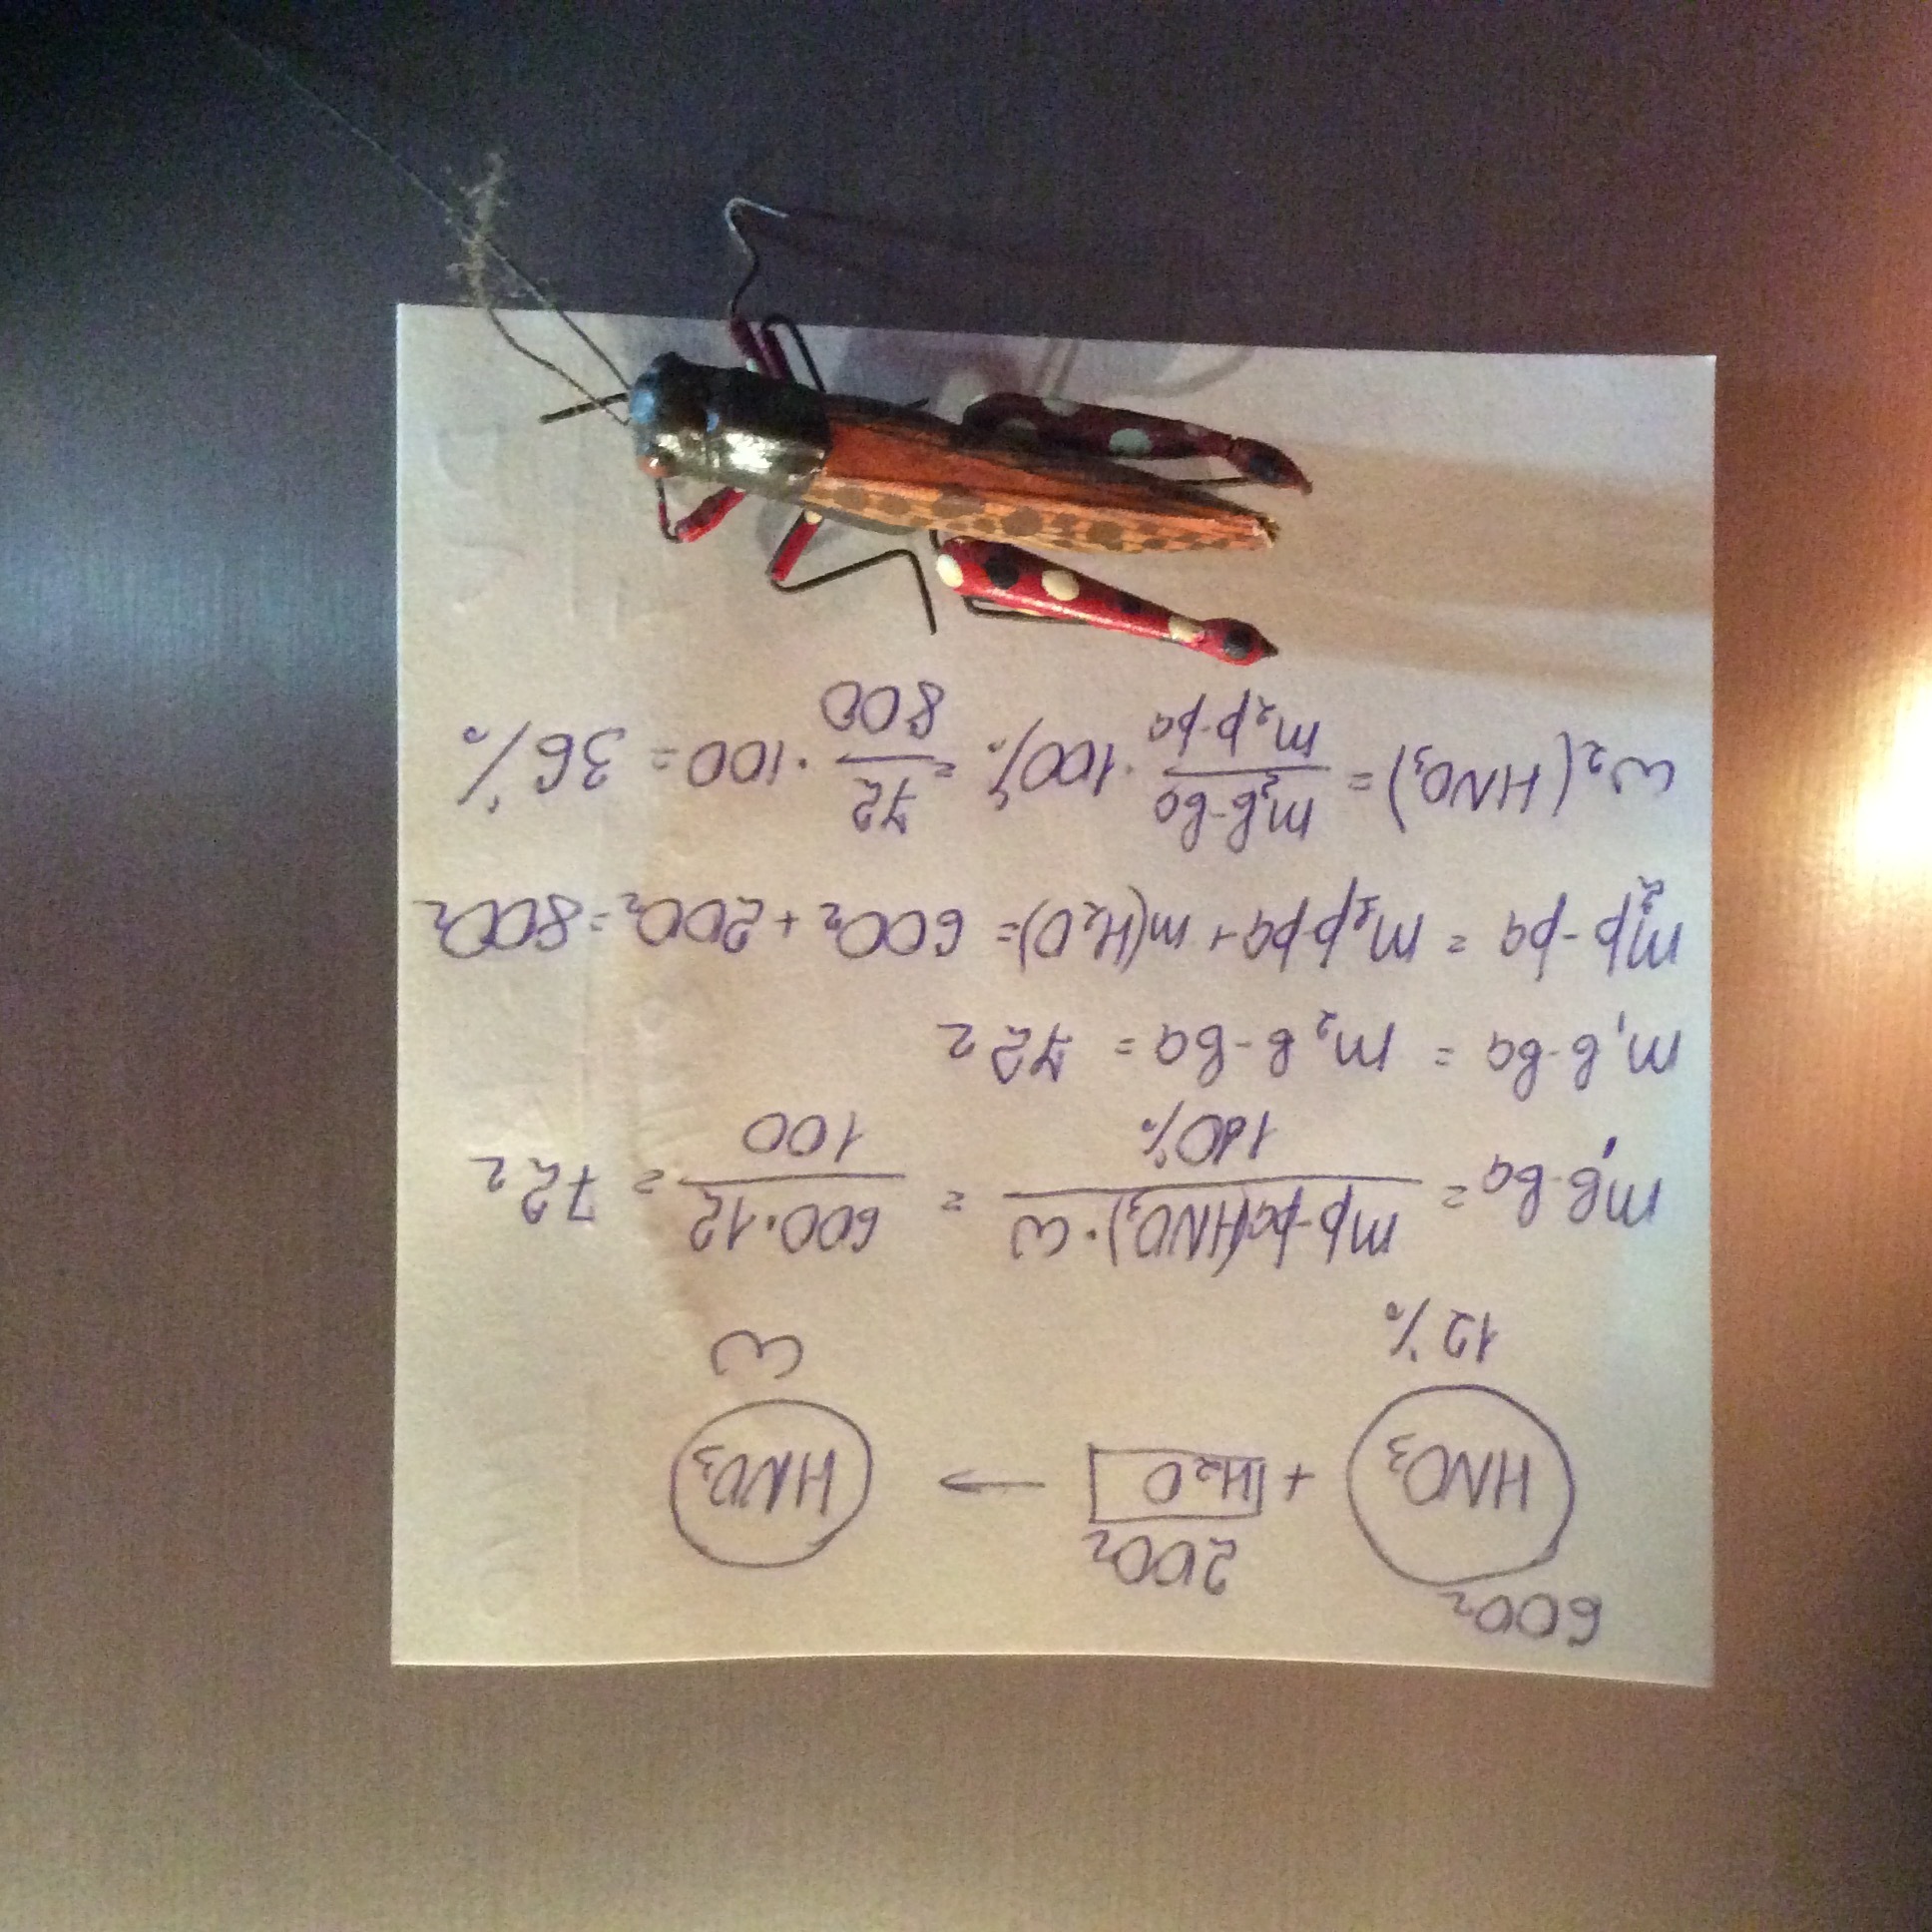 600г 200г
HNO₃ + H₂O → HNO₃
12% ω
m₁в-ва = mр-ра(HNO₃)·ω / 100% = 600·12 / 100 = 72г
m₁в-ва = m₂в-ва = 72г
m₂р-ра = m₁р-ра + m(H₂O) = 600г + 200г = 800г
ω₂(HNO₃) = m₂в-ва / m₂р-ра · 100% = 72 / 800 · 100 = 36%